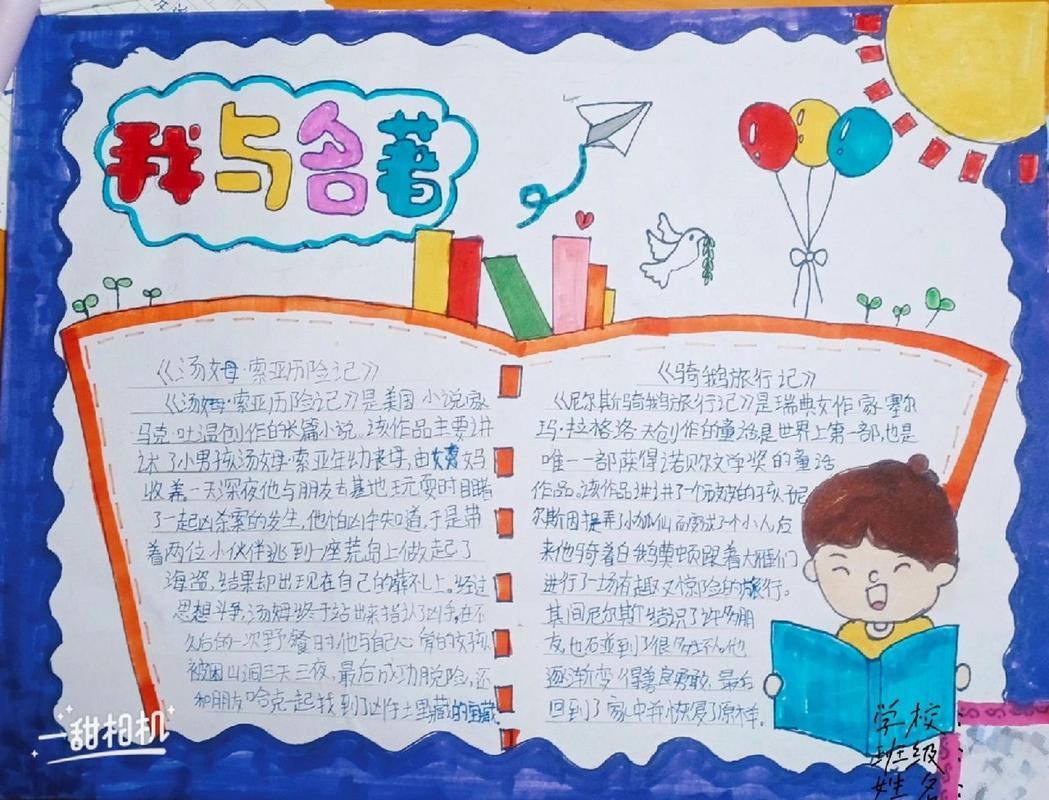 我与名著
《汤姆·索亚历险记》
《汤姆·索亚历险记》是美国小说家
马克·吐温创作的长篇小说。该作品主要讲
述了小男孩汤姆·索亚年幼丧母,由姨妈
收养。一天深夜他与朋友去墓地玩耍时目睹
了一起凶杀案的发生,他怕凶手知道,于是带
着两位小伙伴逃到一座荒岛上做起了
海盗,结果却出现在自己的葬礼上。经过
思想斗争,汤姆终于站出来指认了凶手,在不
久后的一次野餐时他与自己心爱的女孩
被困山洞三天三夜,最后成功脱险,还
和朋友哈克一起找到了凶手土里藏的宝藏
《骑鹅旅行记》
《尼尔斯骑鹅旅行记》是瑞典女作家塞尔
玛·拉格洛夫创作的童话是世界上第一部,也是
唯一一部获得诺贝尔文学奖的童话
作品。该作品讲了一个顽皮的孩子尼
尔斯因捉弄小狐仙而变成了个小人后
来他骑着白鹅跟着大雁们
进行了一场有趣又惊险的旅行。
其间尼尔斯结识了许多朋
友,也碰到了很多坏人他
逐渐变得善良勇敢,最后
回到了家中并恢复了原样。
学校:
班级:
姓名:
甜相机